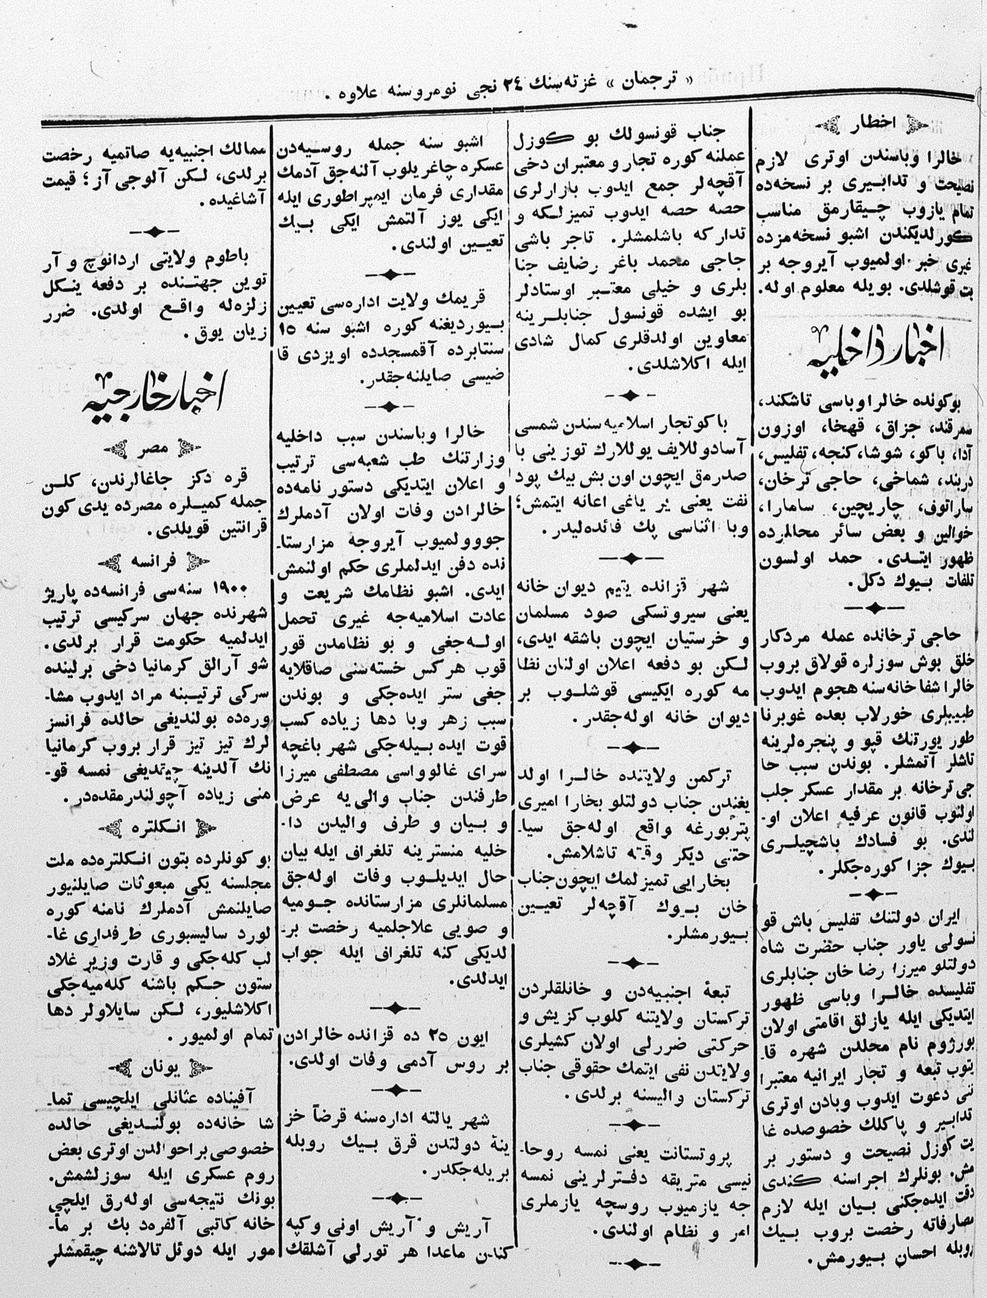 « ترجمان » غزته‌سنك ٢٤ نجى نومروسنه علاوه .
اخطار
خالرا وباسندن اوترى لازم
نصيحت و تدابيرى بر نسخه‌ده
تمام يازوب چيقارمق مناسب
كورلديكندن اشبو نسخه‌مزده
غيرى خبر اولميوب آيروجه بر
بت قوشلدى. بويله معلوم اوله.
اخبار داخليه
بوكونده خالرا وباسى تاشكند،
سمرقند، جزاق، قهخا، اوزون
آدا، باكو، شوشا، كنجه، تفليس،
دربند، شماخى، حاجى ترخان،
ساراتوف، چاريچين، سامارا،
خوالين و بعض سائر محاللرده
ظهور ايتدى. حمد اولسون
تلفات بيوك دكل.
حاجى ترخانده عمله مردكار
خلق بوش سوزلره قولاق بروب
خالرا شفاخانه‌سنه هجوم ايدوب
طبيبلرى خورلاب بعده غوبرنا
طور يورتنك قپو و پنجره‌لرينه
تاشلر آتمشلر. بوندن سبب حا
جى ترخانه بر مقدار عسكر جلب
اولنوب قانون عرفيه اعلان او-
لندى. بو فسادك باشچيلرى
بيوك جزا كوره‌جكلر.
ايران دولتنك تفليس باش قو
نسولى ياور جناب حضرت شاه
دولتلو ميرزا رضا خان جنابلرى
تفليسده خالرا وباسى ظهور
ايتديكى ايله يازلق اقامتى اولان
بورژوم نام محلدن شهره قا-
يتوب تبعه و تجار ايرانيه معتبرا
نى دعوت ايدوب وبادن اوترى
تدابير و پاكلك خصوصده غا
يت كوزل نصيحت و دستور بر
مش. بونلرك اجراسنه كندى
دقت ايده‌جكنى بيان ايله لازم
مصارفاته رخصت بروب بيك
روبله احسان بيورمش.
جناب قونسولك بو كوزل
عملنه كوره تجار و معتبران دخى
آقچه‌لر جمع ايدوب بازارلرى
حصه حصه ايدوب تميزلكه و
تداركه باشلمشلر. تاجر باشى
حاجى محمد باغر رضايف جنا
بلرى و خيلى معتبر اوستادلر
بو ايشده قونسول جنابلرينه
معاوين اولدقلرى كمال شادى
ايله اكلاشلدى.
باكو تجار اسلاميه‌سندن شمسى
آسادوللايف يوللارك توزينى با
صدرمق ايچون اون بش بيك پود
نفت يعنى ير ياغى اعانه ايتمش؛
وبا اثناسى پك فائده‌ليدر.
شهر قزانده يتيم ديوان خانه
يعنى سيروتسكى صود مسلمان
و خرستيان ايچون باشقه ايدى،
لكن بو دفعه اعلان اولنان نظا
مه كوره ايكيسى قوشلوب بر
ديوان خانه اوله‌جقدر.
تركمن ولايتنده خالرا اولد
يغندن جناب دولتلو بخارا اميرى
پتربورغه واقع اوله‌جق سيا-
حتنى ديكر وقته تاشلامش.
بخارايى تميزلمك ايچون جناب
خان بيوك آقچه‌لر تعيين
بيورمشلر.
تبعهٔ اجنبيه‌دن و خانلقلردن
تركستان ولايتنه كلوب كزيش و
حركتى ضررلى اولان كشيلرى
ولايتدن نفى ايتمك حقوقى جناب
تركستان واليسنه برلدى.
پروتستانت يعنى نمسه روحا-
نيسى متريقه دفترلرينى نمسه
جه يازميوب روسچه يازملرى
امر و نظام اولندى.
اشبو سنه جمله روسيه‌دن
عسكره چاغريلوب آلنه‌جق آدمك
مقدارى فرمان ايمپراطورى ايله
ايكى يوز آلتمش ايكى بيك
تعيين اولندى.
قريمك ولايت اداره‌سى تعيين
بيورديغنه كوره اشبو سنه ١٥
سنتابرده آقمسجدده اويزدى قا
ضيسى صايلنه‌جقدر.
خالرا وباسندن سبب داخليه
وزارتنك طب شعبه‌سى ترتيب
و اعلان ايتديكى دستورنامه‌ده
خالرادن وفات اولان آدملرك
جووولميوب آيروجه مزارستا-
نده دفن ايدلملرى حكم اولنمش
ايدى. اشبو نظامك شريعت و
عادت اسلاميه‌جه غيرى تحمل
اوله‌جغى و بو نظامدن قور
قوب هركس خسته‌سنى صاقلايه
جغى ستر ايده‌جكى و بوندن
سبب زهر وبا دها زياده كسب
قوت ايده‌بيله‌جكى شهر باغچه
سراى غالوواسى مصطفى ميرزا
طرفندن جناب والى‌يه عرض
و بيان و طرف واليدن دا-
خليه منسترينه تلغراف ايله بيان
حال ايديلوب وفات اوله‌جق
مسلمانلرى مزارستانده جوميه
و صويى علاجلميه رخصت بر-
لديكى كنه تلغراف ايله جواب
ايدلدى.
ايون ٢٥ ده قزانده خالرادن
بر روس آدمى وفات اولدى.
شهر يالته اداره‌سنه قرضاً خز
ينهٔ دولتدن قرق بيك روبله
بريله‌جكدر.
آريش و آريش اونى وكپه
كندن ماعدا هر تورلى آشلقك
ممالك اجنبيه‌يه صاتميه رخصت
برلدى، لكن آلوجى آز؛ قيمت
آشاغيده.
باطوم ولايتى اردانوچ و آر
توين جهتنده بر دفعه ينكل
زلزله واقع اولدى. ضرر
زيان يوق.
اخبار خارجيه
مصر
قره دكز جاغالرندن، كلن
جمله كميلره مصرده يدى كون
قرانتين قويلدى.
فرانسه
١٩٠٠ سنه‌سى فرانسه‌ده پاريژ
شهرنده جهان سركيسى ترتيب
ايدلميه حكومت قرار برلدى.
شو آرالق كرمانيا دخى برلينده
سركى ترتيبنه مراد ايدوب مشا-
وره‌ده بولنديغى حالده فرانسز
لرك تيز تيز قرار بروب كرمانيا
نك آلدينه چيتديغى نمسه قو-
منى زياده آچولندرمقده‌در.
انكلتره
بو كونلرده بتون انكلتره‌ده ملت
مجلسنه يكى مبعوثات صايلنيور
صايلنمش آدملرك نامنه كوره
لورد ساليسبورى طرفدارى غا-
لب كله‌جكى و قارت وزير غلاد
ستون حكم باشنه كله‌ميه‌جكى
اكلاشليور، لكن سايلاولر دها
تمام اولميور.
يونان
آفيناده عثانلى ايلچيسى تما-
شا خانه‌ده بولنديغى حالده
خصوصى بر احوالدن اوترى بعض
روم عسكرى ايله سوزلشمش.
بونك نتيجه‌سى اوله‌رق ايلچى
خانه كاتبى آلفره‌د بك بر ما-
مور ايله دوئل تالاشنه چيقمشلر